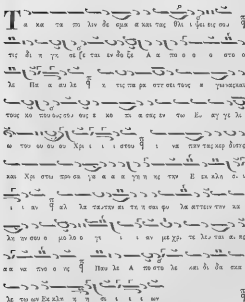 Τα κα τα πο λιν δε σμα α και τας θλι ι ψεις σου
τις δι η γη σε ζε ται εν δο ξε Α α πο ο ο στο ο
λε Πα α αυ λε κ τις πα ρα στη σει τους α γω νας και
τους κο πους σου ους ε κο πι α σας εν τω Ευ αγ γε λι
ω του ου ου ου Χρι ι ι στου ι να παν τας κερ δη σης
και Χρι στω προ σα γα α α γη η ης την Ε εκ κλη σι ι
ι ι αν αλ λα ταυ την αι τη η σαι φυ λα ατ τειν την κα
λην ην σου ο μο λο ο γι ι ι ι αν με χρι τε λευ ται αι ας
α α να πνο ο ης Παυ λε Α πο στο λε και δι δα σκα
λε των Εκ κλη η η σι ι ι ι ων